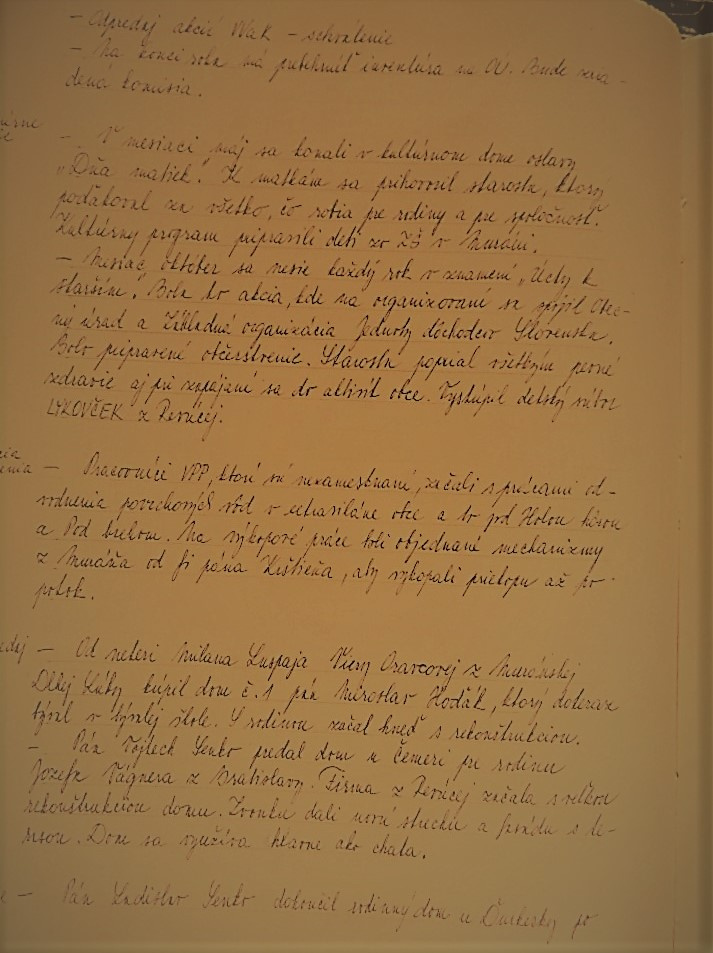 - Odpredaj akcií VVaK - schválenie
- Na konci roka má prebehnúť inventúra na OÚ. Bude zria-
dená komisia.
- V mesiaci máj sa konali v kultúrnom dome oslavy
"Dňa matiek". K matkám sa prihovoril starosta, ktorý
poďakoval za všetko, čo robia pre rodiny a pre spoločnosť.
Kultúrny program pripravili deti zo ZŠ v Muráni.
- Mesiac október sa nesie každý rok v znamení "Úcty k
starším". Bola to akcia, kde na organizovaní sa spojil Obec-
ný úrad a Základná organizácia Jednoty dôchodcov Slovenska.
Bolo pripravené občerstvenie. Starosta poprial všetkým pevné
zdravie aj pri zapájaní sa do aktivít obce. Vystúpil detský súbor
LYKOVČEK z Revúcej.
- Pracovníci VPP, ktorí sú nezamestnaní, začali s prácami od-
vodnenia povrchových vôd v extraviláne obce a to pod Holou hôrou
a Pod brehom. Na výkopové práce boli objednané mechanizmy
z Muráňa od fi pána Kištieňa, aby vykopali priekopu až po
potok.
- Od neteri Milana Luspaja Viery Oravcovej z Muránskej
Dlhej Lúky kúpil dom č. 1 pán Miroslav Hodák, ktorý doteraz
býval v bývalej škole. S rodinou začal hneď s rekonštrukciou.
- Pán Vojtech Senko predal dom u Čemeri pre rodinu
Jozefa Vágnera z Bratislavy. Firma z Revúcej začala s veľkou
rekonštrukciou domu. Zvonku dali novú strechu a fasádu s te-
rasou. Dom sa využíva hlavne ako chata.
- Pán Ladislav Senko dokončil rodinný dom u po